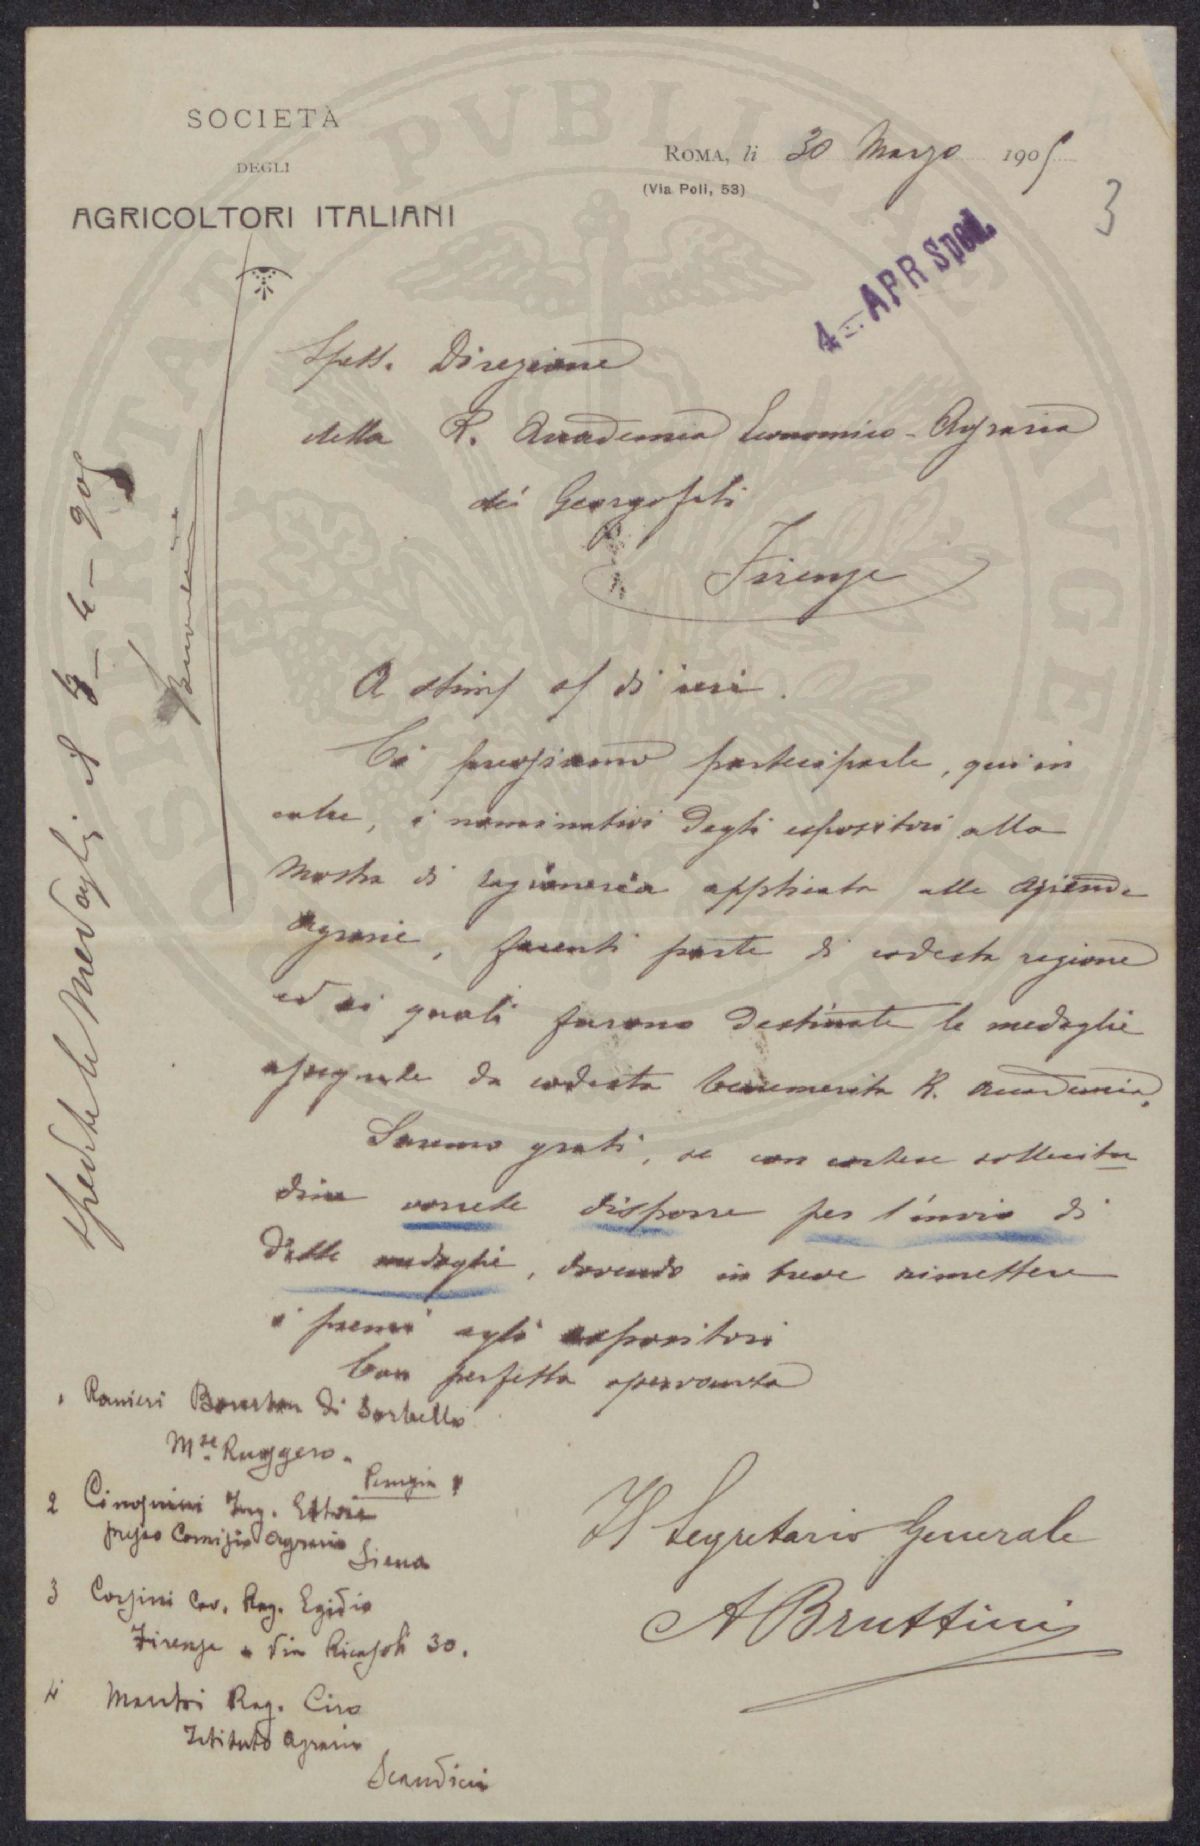 SOCIETÀ
DEGLI
AGRICOLTORI ITALIANI
ROMA, li 30 Marzo 1905
(Via Poli, 53)
3
4 - APR Sped.
Spett. Direzione
della R. Accademia Economico-Agraria
dei Georgofili
Firenze
A stim/ of di ieri.
Ci pregiamo parteciparle, qui in
calce, i nominativi degli espositori alla
Mostra di ragioneria applicata alle Aziende
Agrarie, facenti parte di codesta regione
ed ai quali furono destinate le medaglie
assegnate da codesta benemerita R. Accademia.
Saremo grati, se con cortese sollecitu
dine vorrete disporre per l'invio di
dette medaglie, dovendo in breve rimettere
i premi agli espositori
Con perfetta osservanza
Il Segretario Generale
A Bruttini
1 Ranieri Bourbon di Sorbello
Mse Ruggero.
Perugia
2 Cinquini Ing. Ettore
presso Comizio Agrario
Siena
3 Corsini Cav. Rag. Egidio
Firenze - Via Ricasoli 30.
4 Rag. Ciro
Istituto Agrario
Scandicci
spedite le Medaglie il 4 - 905
SPERITATI PVBLICAE AVGENDAE